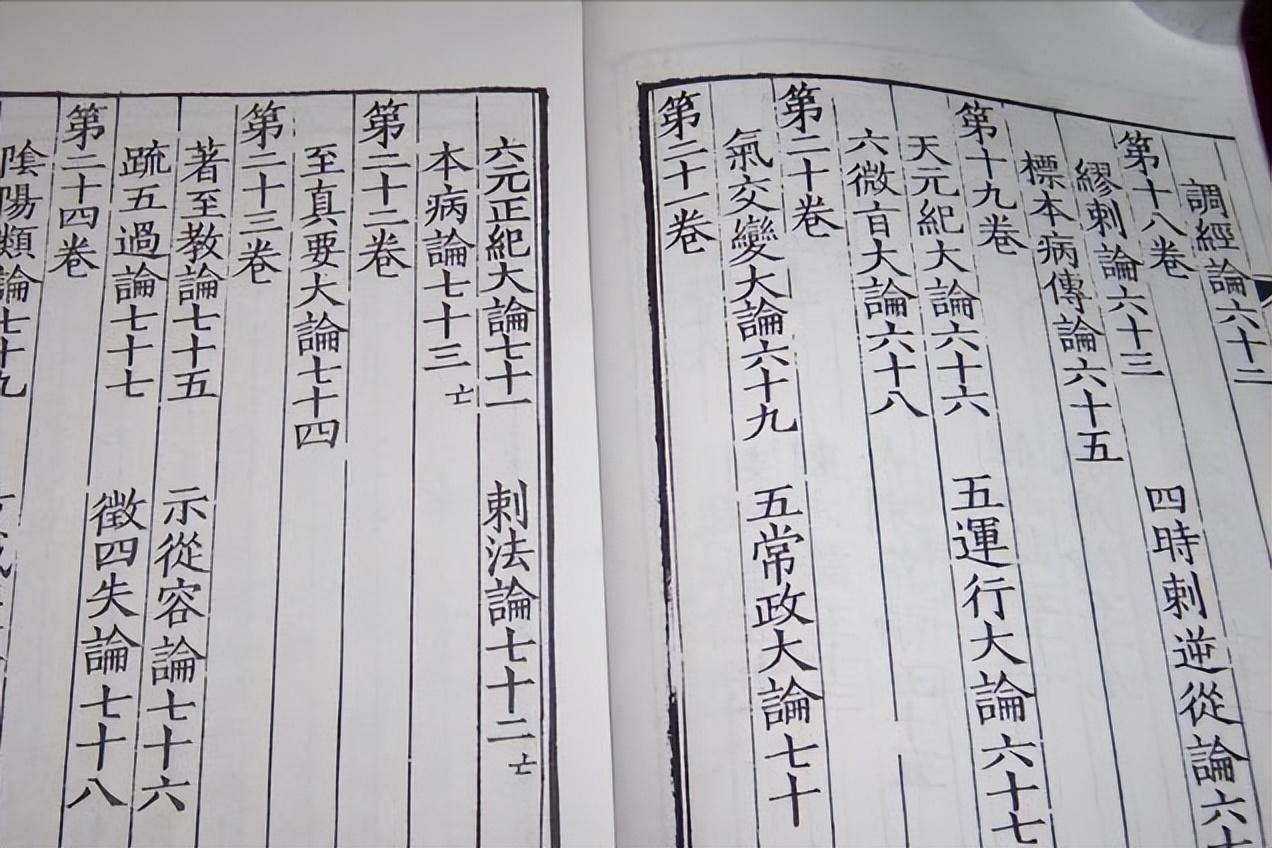 調經論六十二
第十八卷
繆刺論六十三 四時刺逆從論六十
標本病傳論六十五
第十九卷
天元紀大論六十六 五運行大論六十七
六微旨大論六十八
第二十卷
氣交變大論六十九 五常政大論七十
第二十一卷
六元正紀大論七十一 刺法論七十二亡
本病論七十三亡
第二十二卷
至真要大論七十四
第二十三卷
著至教論七十五 示從容論七十六
疏五過論七十七 徵四失論七十八
第二十四卷
陰陽類論七十九